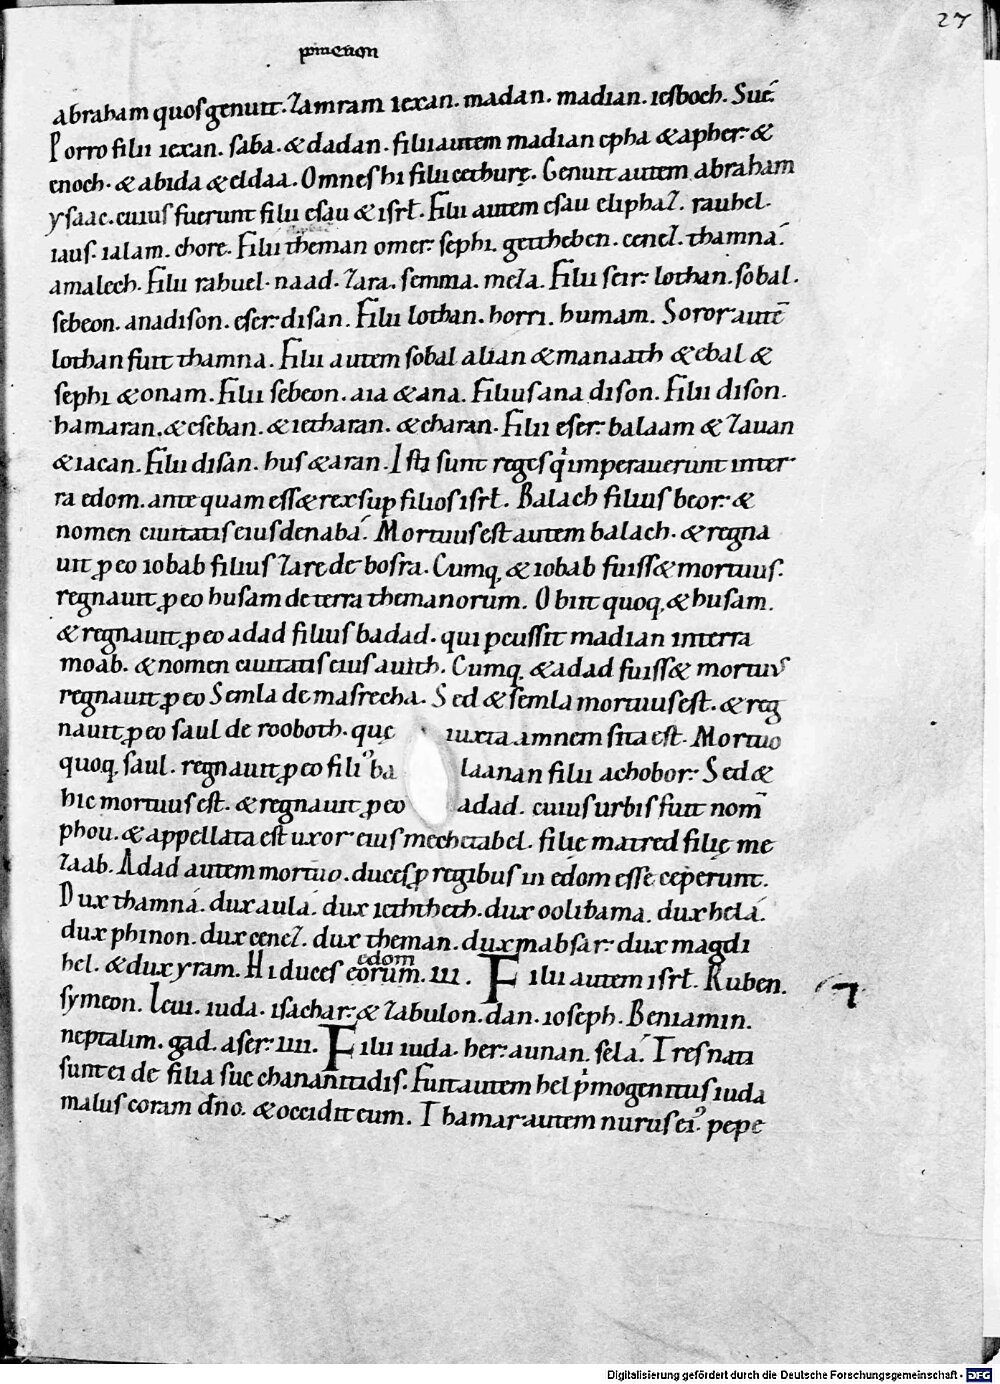 27
abraham quos genuit. Zamram iexan. madan. madian. iesboch. Sue.
Porro filii iexan. saba. & dadan. filii autem madian epha & apher. &
enoch. & abida & eldaa. Omnes hi filii cethurę. Genuit autem abraham
ysaac. cuius fuerunt filii esau & isrł. Filii autem esau eliphaz. rauhel.
iaus. ialam. chore. Filii theman omer. sephi. getheben. cenez. thamna.
amalech. Filii rahuel. naad. zara. semma. meza. Filii seir. lothan. sobal.
sebeon. ana dison. eser. disan. Filii lothan. horri. humam. Soror autē
lothan fuit thamna. Filii autem sobal alian & manaath & ebal &
sephi & onam. Filii sebeon. aia & ana. Filius ana dison. Filii dison.
hamaran. & eseban. & ietharan. & charan. Filii eser. balaam & zauan
& iacan. Filii disan. hus & aran. Isti sunt reges q imperauerunt inter
ra edom. ante quam ess& rex sup filios isrł. Balach filius beor. &
nomen ciuitatis eius denaba. Mortuus est autem balach. & regna
uit ꝓ eo iobab filius zare de bosra. Cumq. & iobab fuiss& mortuus.
regnauit ꝓ eo husam de terra themanorum. Obiit quoq. & husam.
& regnauit ꝓ eo adad filius badad. qui pcussit madian interra
moab. & nomen ciuitatis eius auith. Cumq. & adad fuiss& mortuus
regnauit ꝓ eo Semla de masrecha. Sed & semla mortuus est. & reg
nauit ꝓ eo saul de rooboth. quę iuxta amnem sita est. Mortuo
quoq. saul. regnauit ꝓ eo fili᾿ ba laanan filii achobor. Sed &
hic mortuus est. & regnauit ꝓ eo adad. cuius urbis fuit nom̄
phou. & appellata est uxor eius meehetabel. filię matred filię me
zaab. Adad autem mortuo. duces ꝓ regibus in edom esse ceperunt.
Dux thamna. dux aula. dux ieththeth. dux oolibama. dux hela.
dux phinon. dux cenez. dux theman. dux mabsar. dux magdi
hel. & dux yram. Hi duces eorum. III. Filii autem isrł. Ruben.
edom
symeon. Leui. iuda. isachar. & zabulon. dan. ioseph. Beniamin.
neptalim. gad. aser. IIII. Filii iuda. her. aunan. sela. Tres nati
sunt ei de filia sue chananitidis. Fuit autem hel pmogenitus iuda
malus coram dño. & occidit eum. Thamar autem nurus ei᾿. pepe
Digitalisierung gefördert durch die Deutsche Forschungsgemeinschaft - DFG